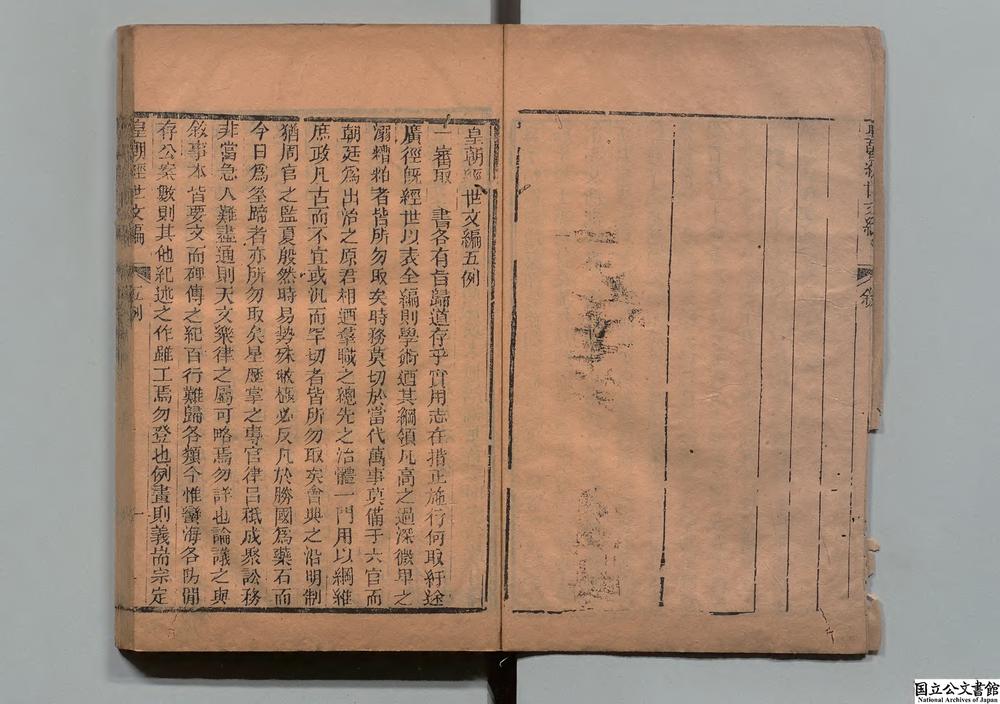 皇朝經世文編 敘
皇朝經世文編五例
一審取 書各有旨歸道存乎實用志在措正施行何取紆途
廣徑旣經世以表全編則學術迺其綱領凡高之過深微卑之
溺糟粕者皆所勿取矣時務莫切於當代萬事莫備于六官而
朝廷爲出治之原君相迺羣職之總先之治體一門用以綱維
庶政凡古而不宜或汎而罕切者皆所勿取矣會典之沿明制
猶周官之監夏殷然時易勢殊敝極必反凡於勝國爲藥石而
今日爲筌蹄者亦所勿取矣星歷掌之專官律呂秪成聚訟務
非當急人難盡通則天文樂律之屬可略焉勿詳也論議之與
敘事本皆要文而碑傳之紀百行難歸各類今惟蠻海各防閒
存公案數則其他紀述之作雖工焉勿登也例畫則義耑宗定
皇朝經世文編 五例 一
国立公文書館
National Archives of Japan